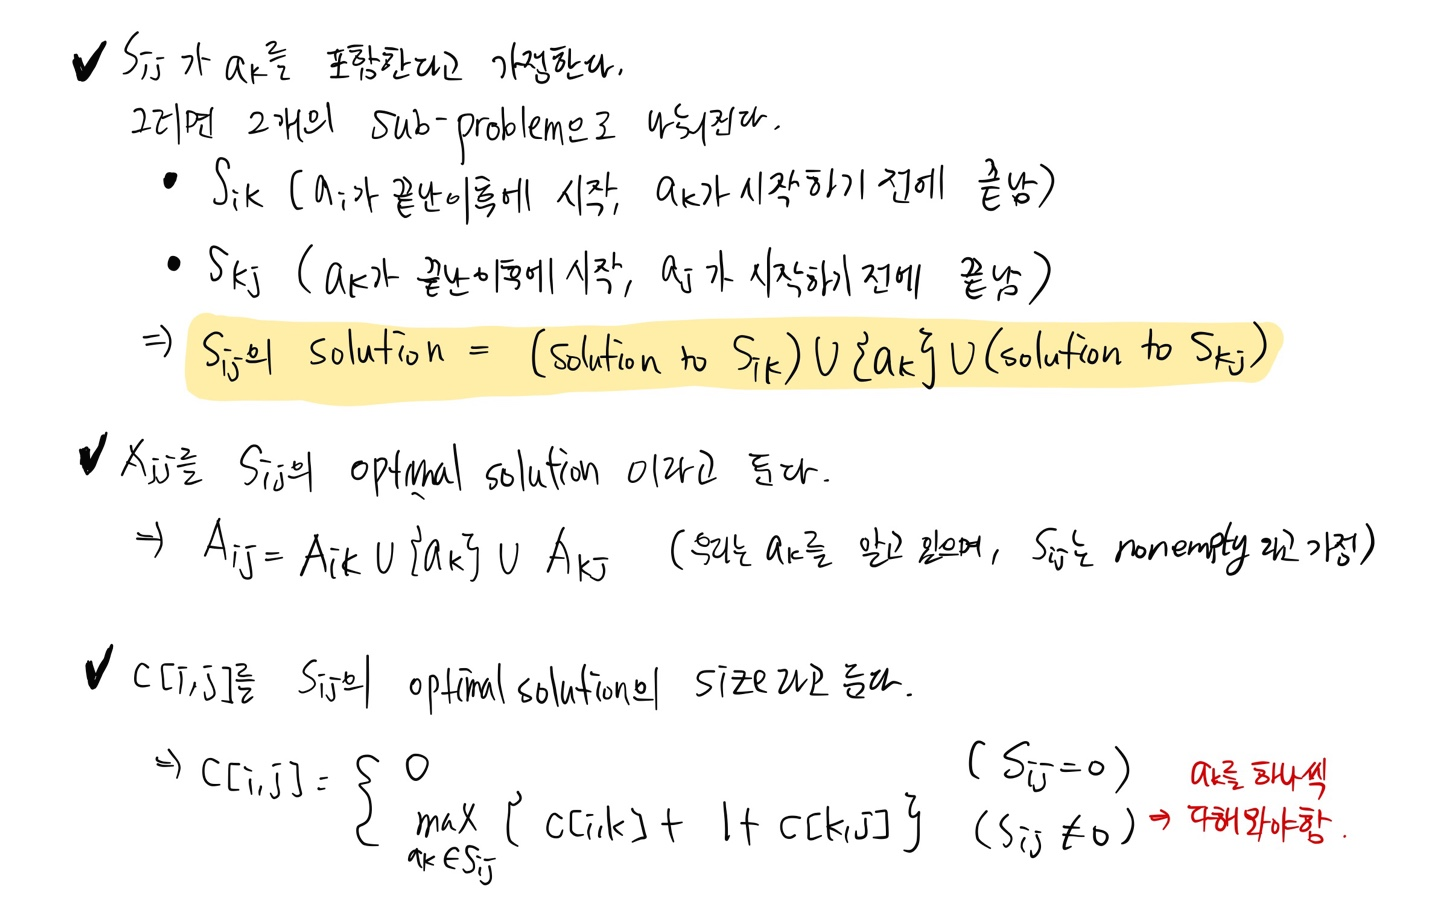 ✔ Sij가 ak를 포함한다고 가정한다.
그러면 2개의 sub-problem으로 나눠진다.
• Sik (ai가 끝난이후에 시작, ak가 시작하기 전에 끝남)
• Skj (ak가 끝난이후에 시작, aj가 시작하기 전에 끝남)
⇒ Sij의 solution = (solution to Sik) ∪ {ak} ∪ (solution to Skj)
✔ Aij를 Sij의 optimal solution 이라고 둔다.
⇒ Aij = Aik ∪ {ak} ∪ Akj (우리는 ak를 알고 있으며, Sij는 nonempty라고 가정)
✔ C[i,j]를 Sij의 optimal solution의 size라고 둔다.
⇒ C[i,j] = { 0 (Sij=0)
max { C[i,k] + 1 + C[k,j] } (Sij≠0) → ak를 하나씩
ak∈Sij
다해와야함.